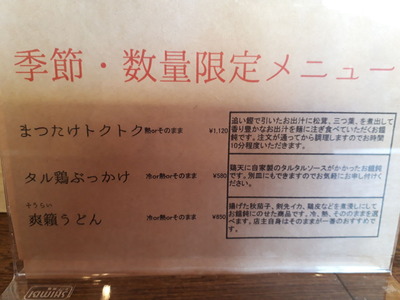 季節・数量限定メニュー
まつたけトクトク 熱orそのまま ¥1,120
追い鰹で引いたお出汁に松茸、三つ葉、を煮出して
香り豊かなお出汁を麺に注ぎ食べていただくお饂
飩です。注文が通ってから調理しますのでお時間
10分程度いただきます。
タル鶏ぶっかけ 冷or熱orそのまま ¥580
鶏天に自家製のタルタルソースがかかったお饂飩
です。別皿にもできますのでお気軽にお申し付けく
ださい。
そうらい
爽籟うどん 冷or熱orそのまま ¥650
揚げた秋茄子、剣先イカ、鶏皮などを煮浸しにして
お饂飩にのせた商品です。冷、熱、そのままを選
べます。店主自身はそのままが一番のおすすめで
す。